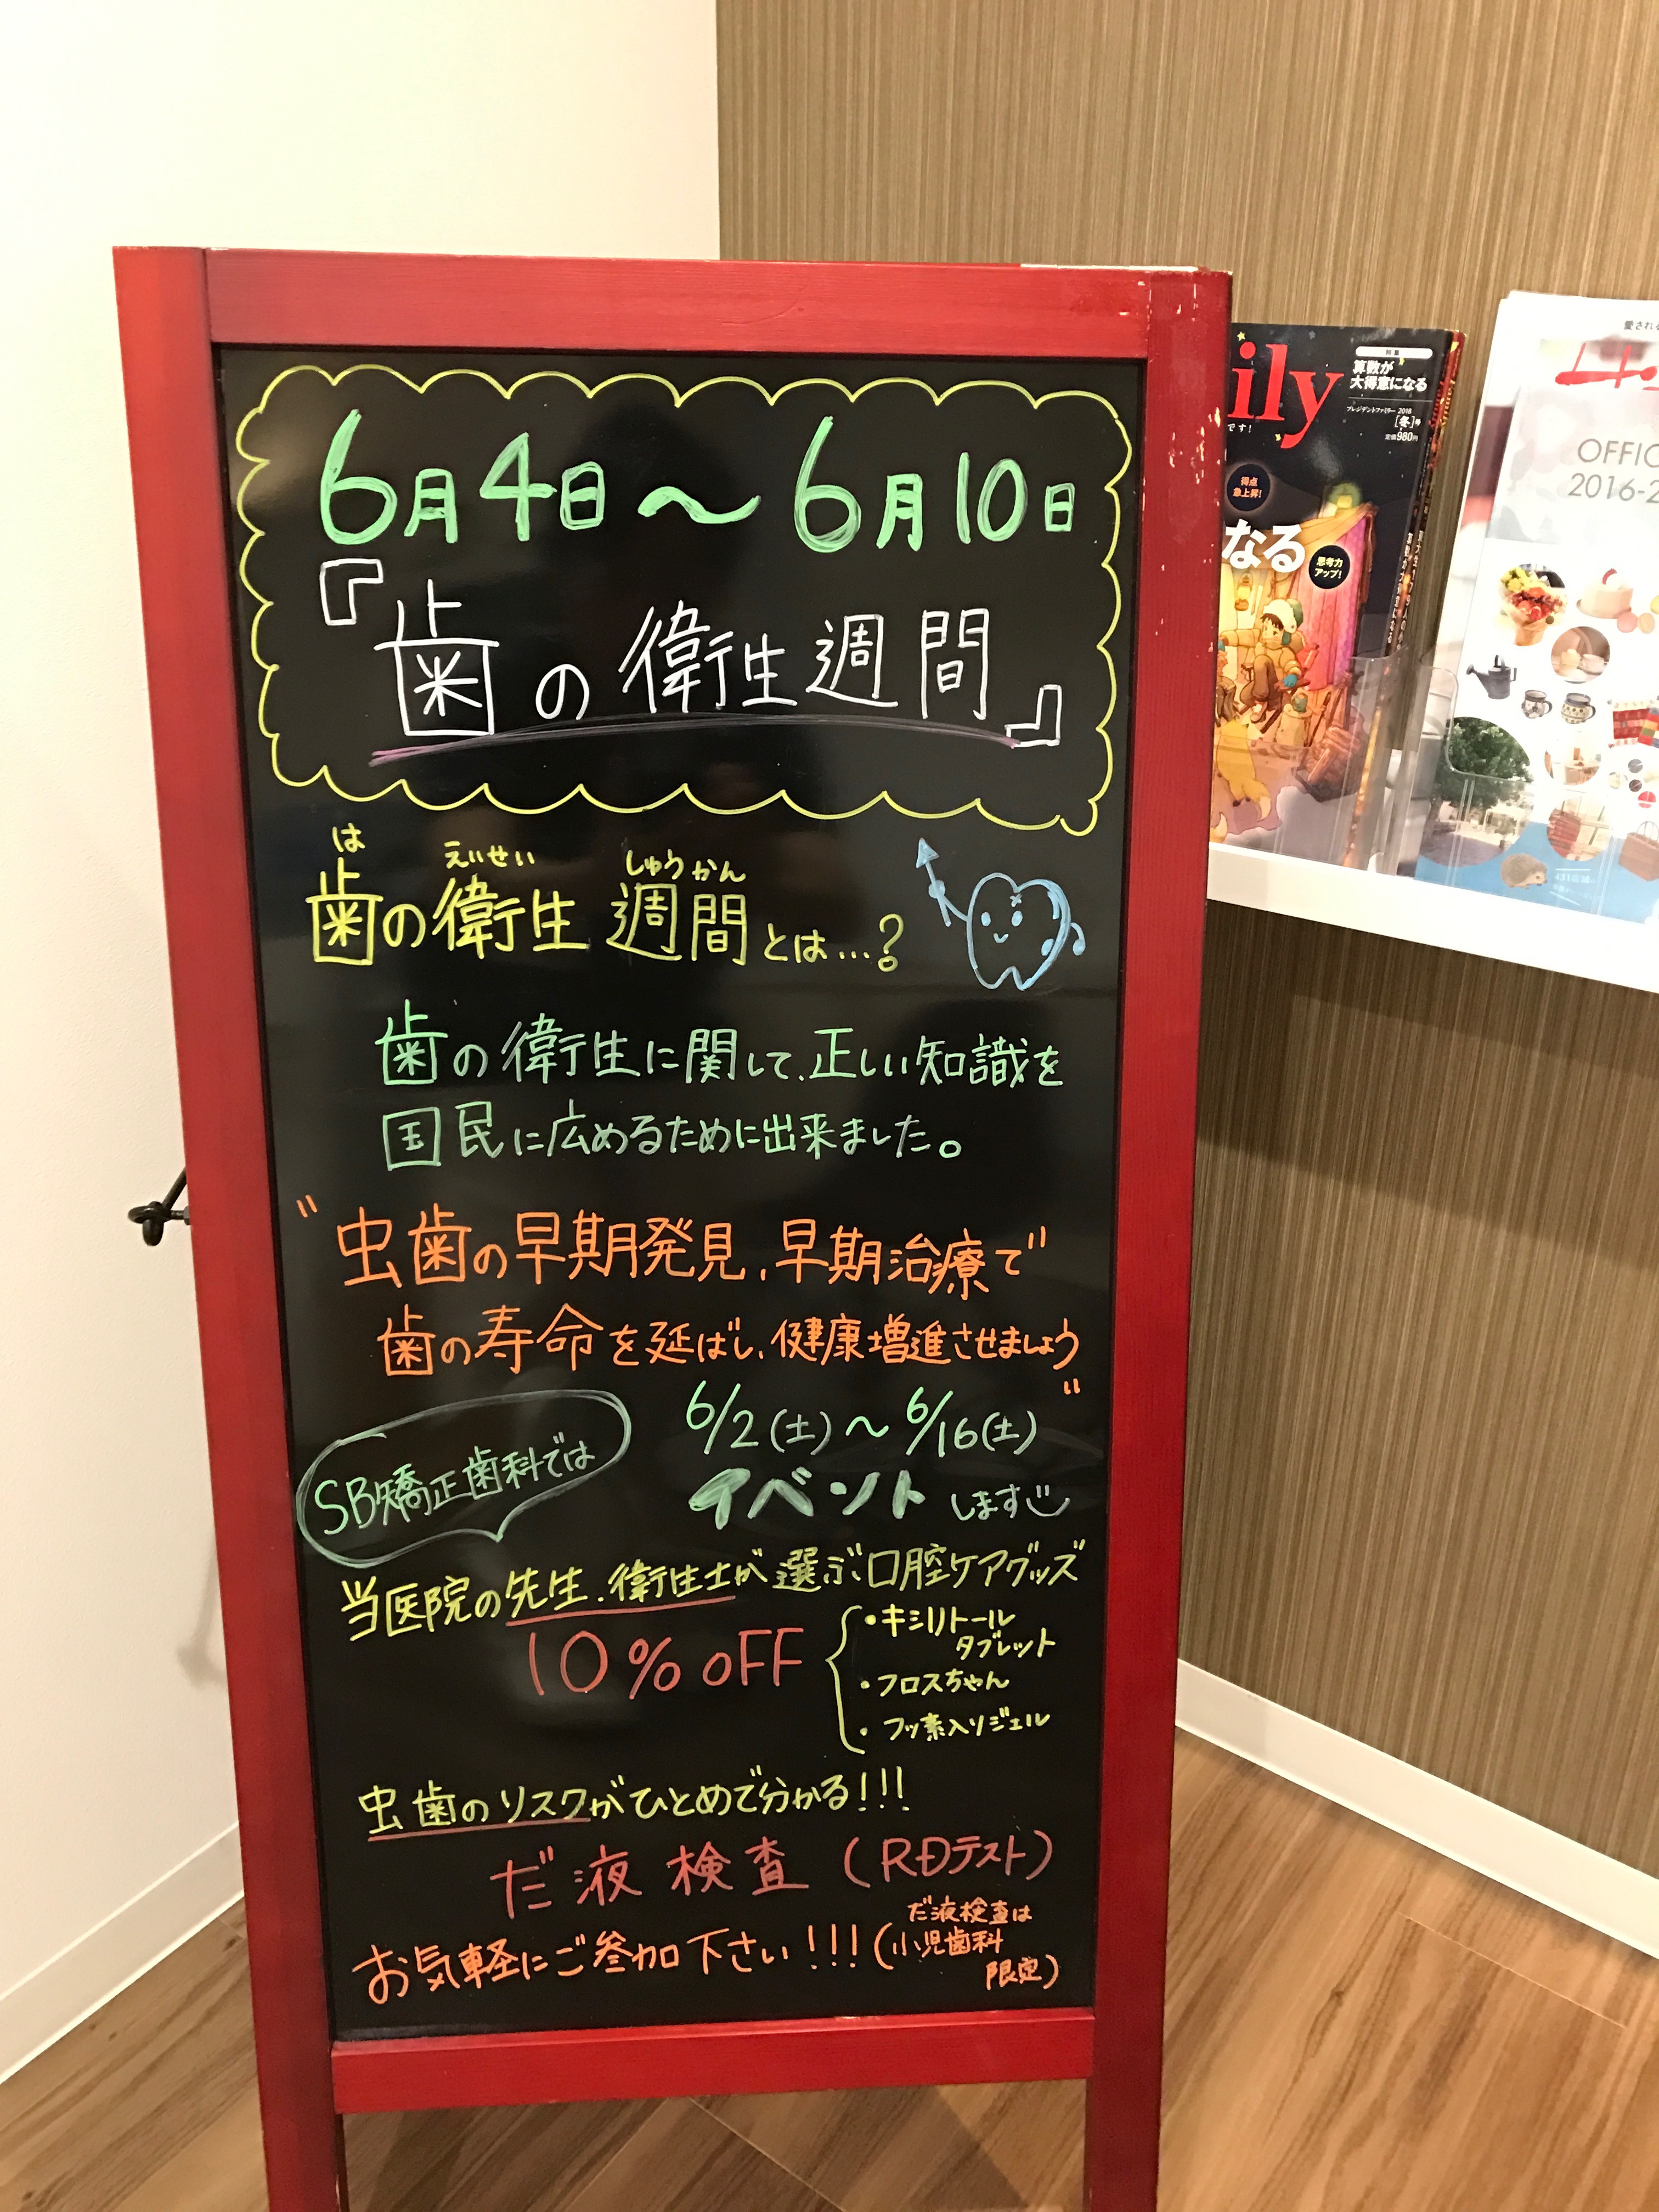 6月4日～6月10日
『歯の衛生週間』
は えいせい しゅうかん
歯の衛生週間とは…?
歯の衛生に関して、正しい知識を
国民に広めるために出来ました。
"虫歯の早期発見、早期治療で"
歯の寿命を延ばし、健康増進させましょう"
SB矯正歯科では
6/2(土)～6/16(土)
イベントします
当医院の先生、衛生士が選ぶ口腔ケアグッズ
10%OFF
・キシリトール
タブレット
・フロスちゃん
・フッ素入りジェル
虫歯のリスクがひとめで分かる!!!
だ液検査(RDテスト)
お気軽にご参加下さい!!!
(だ液検査は
小児歯科
限定)
ily
特集
算数が
大得意になる
プレジデントファミリー 2018
[冬]号
定価980円
です!
得点
急上昇!
なる
思考力
アップ!
愛される
OFFIC
2016-2